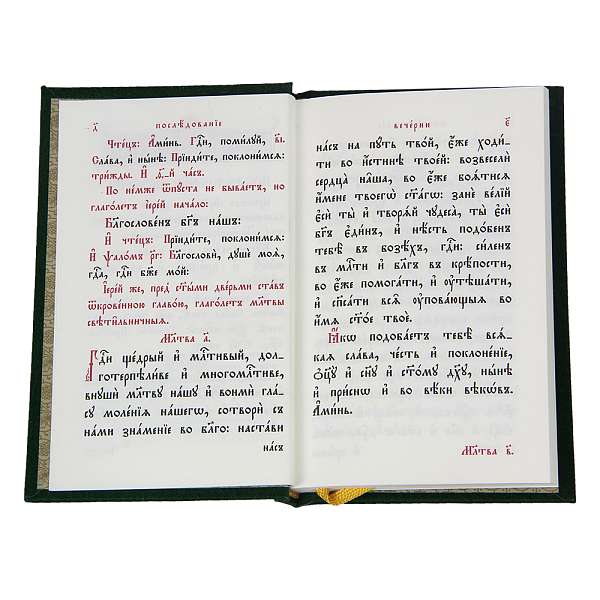 д҃ послѣ́дованїе
Чте́цъ: А҆ми́нь. Гдⷭ҇и, поми́лꙋй, в҃і.
Сла́ва, и҆ ны́нѣ: Прїиди́те, поклони́мсѧ:
три́жды. И҆ ѳ҃-й ча́съ.
По не́мже ѿпꙋ́ста не быва́етъ, но
глаго́летъ і҆ере́й нача́ло:
Бл҃гослове́нъ бг҃ъ на́шъ:
И҆ чте́цъ: Прїиди́те, поклони́мсѧ:
И҆ ѱало́мъ р҃г: Благословѝ, дꙋшѐ моѧ̀,
гдⷭ҇а, гдⷭ҇и бж҃е мо́й:
І҆ере́й же, пред̾ ст҃ы́ми две́рьми ста́въ
ѿкрове́нною главо́ю, глаго́летъ мл҃твы
свѣти́льничныѧ.
Мл҃тва а҃.
Гдⷭ҇и ще́дрый и҆ млⷭ҇тивый, дол-
готерпѣли́ве и҆ многомлⷭ҇тиве,
внꙋшѝ мл҃твꙋ на́шꙋ и҆ вонмѝ гла́-
сꙋ моле́нїѧ на́шегѡ, сотворѝ съ
на́ми зна́менїе во бл҃го: наста́ви
на́съ
вече́рни є҃
на́съ на пꙋ́ть тво́й, є҆́же ходи́-
ти во и҆́стинѣ твое́й: возвеселѝ
сердца̀ на̑ша, во є҆́же боѧ́тисѧ
и҆́мене твоегѡ̀ ст҃а́гѡ: занѐ ве́лїй
є҆сѝ ты̀ и҆ творѧ́й чꙋдеса̀, ты̀ є҆сѝ
бг҃ъ є҆ди́нъ, и҆ нѣ́сть подо́бенъ
тебѣ̀ въ бозѣ́хъ, гдⷭ҇и: си́ленъ
въ млⷭ҇ти и҆ бл҃гъ въ крѣ́пости,
во є҆́же помога́ти, и҆ ᲂу҆тѣша́ти,
и҆ сп҃са́ти всѧ̑ ᲂу҆пова́ющыѧ во
и҆́мѧ ст҃о́е твоѐ.
Ꙗ҆́кѡ подоба́етъ тебѣ̀ всѧ́-
каѧ сла́ва, че́сть и҆ поклоне́нїе,
ѻ҆ц҃ꙋ̀ и҆ сн҃ꙋ и҆ ст҃о́мꙋ дх҃ꙋ, ны́нѣ
и҆ при́снѡ и҆ во вѣ́ки вѣкѡ́въ.
А҆ми́нь.
Мл҃тва в҃.